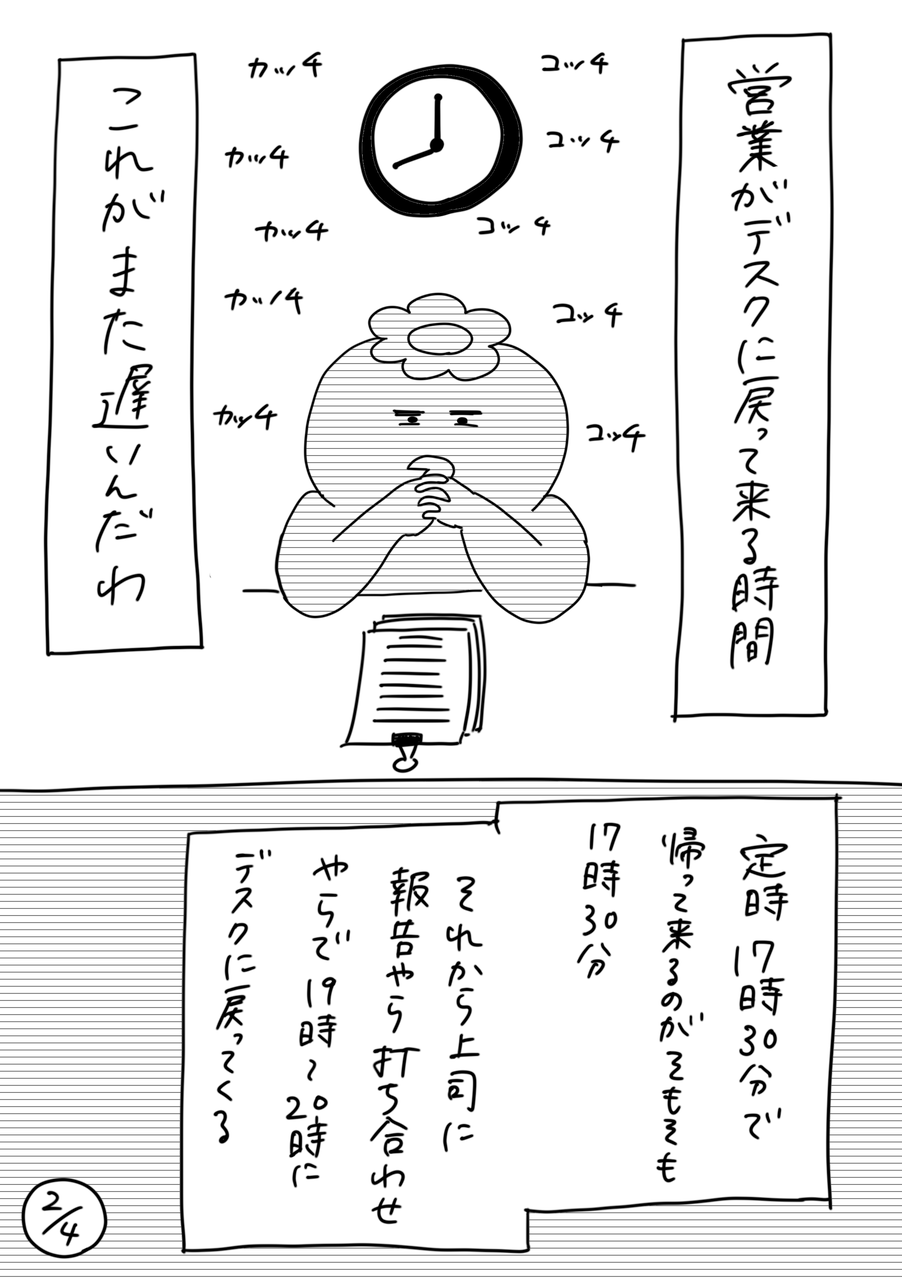 営業がデスクに戻って来る時間
コッチ
コッチ
コッチ
コッチ
コッチ
カッチ
カッチ
カッチ
カッチ
カッチ
これがまた遅いんだわ
定時17時30分で
帰って来るのがそもそも
17時30分
それから上司に
報告やら打ち合わせ
やらで19時〜20時に
デスクに戻ってくる
2/4